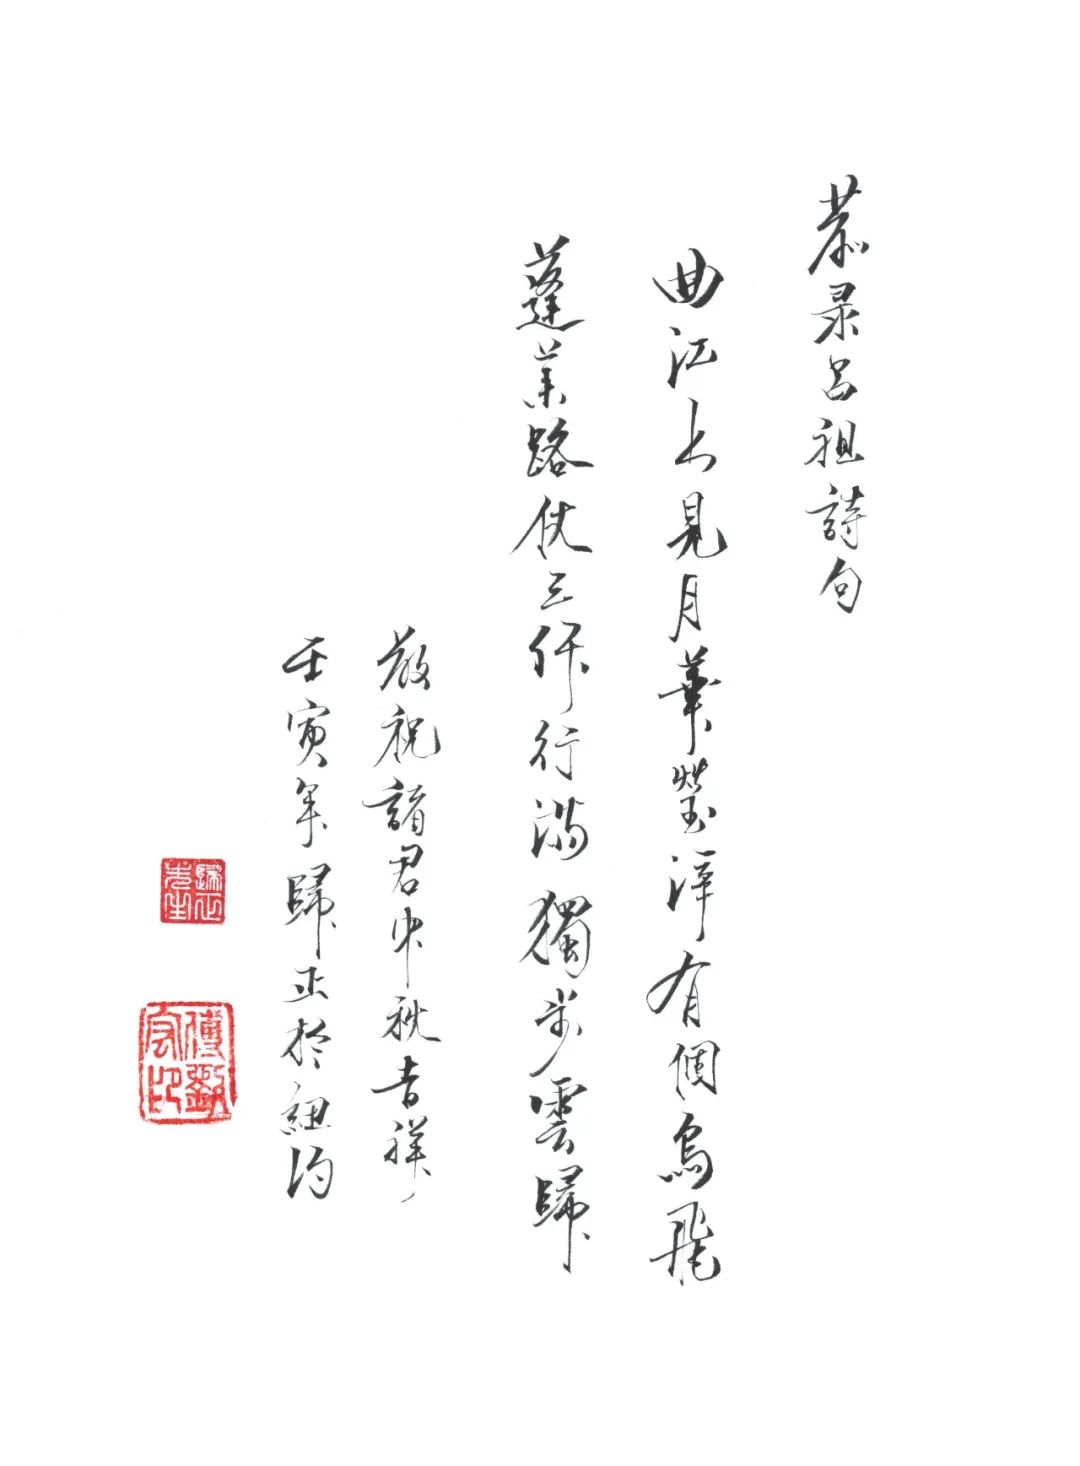 恭录呂祖詩句
曲江上見月華瑩淨有個烏飛
蓬莱路仗三仟行滿獨步雲歸
敬祝諸君中秋吉祥
壬寅年歸正於紐約
歸正先生